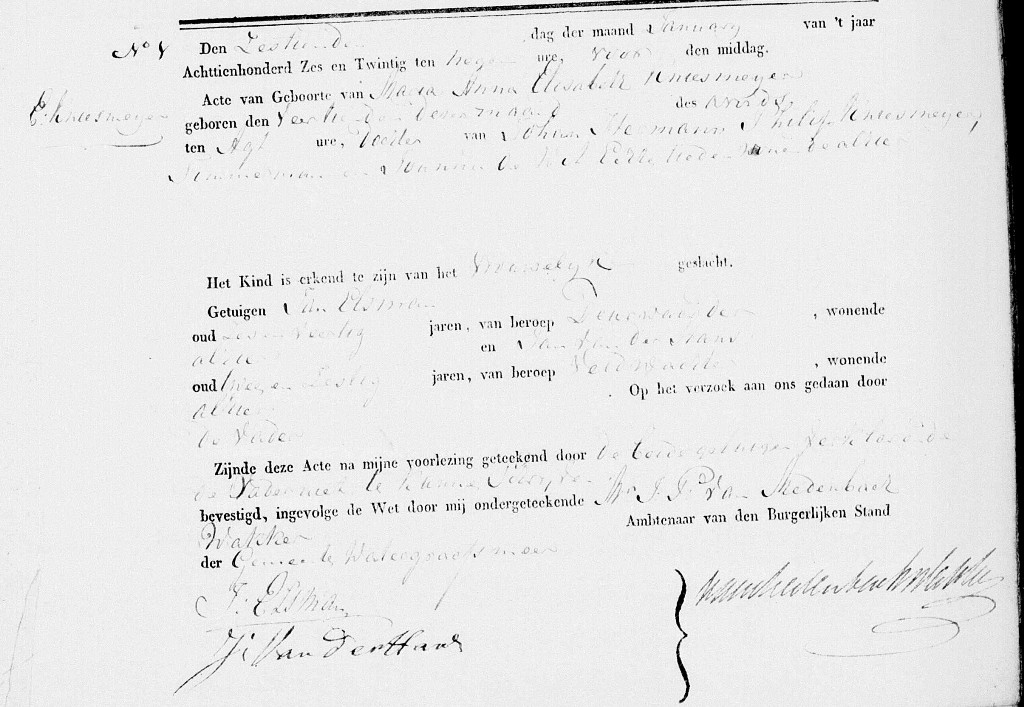 No
Den Zestienden dag der maand January van 't jaar
Achttienhonderd Zes en Twintig ten negen ure, voor den middag.
Acte van Geboorte van Maria Anna Elisabeth Kniesmeyer
E: Kniesmeyer
geboren den Veertienden dezer maand des avonds
ten Agt ure, Dochter van Johan Hermann Philip Kniesmeyer,
Timmerman en
Het Kind is erkend te zijn van het Vrouwelyk geslacht.
Getuigen Jan Elsman
oud Zes en Veertig jaren, van beroep Deurwaarder, wonende
alhier en Jan van der Haar
oud Twee en Zestig jaren, van beroep Veldwachter, wonende
alhier. Op het verzoek aan ons gedaan door
de Vader
Zijnde deze Acte na mijne voorlezing geteekend door de beide getuigen
de Vader niet te kunnen Schryven
bevestigd, ingevolge de Wet door mij ondergeteekende Mr J. P. van Medenbach
Wakker Ambtenaar van den Burgerlijken Stand
der Gemeente Watergraafsmeer
J: Elsman
J: Van Der Haar